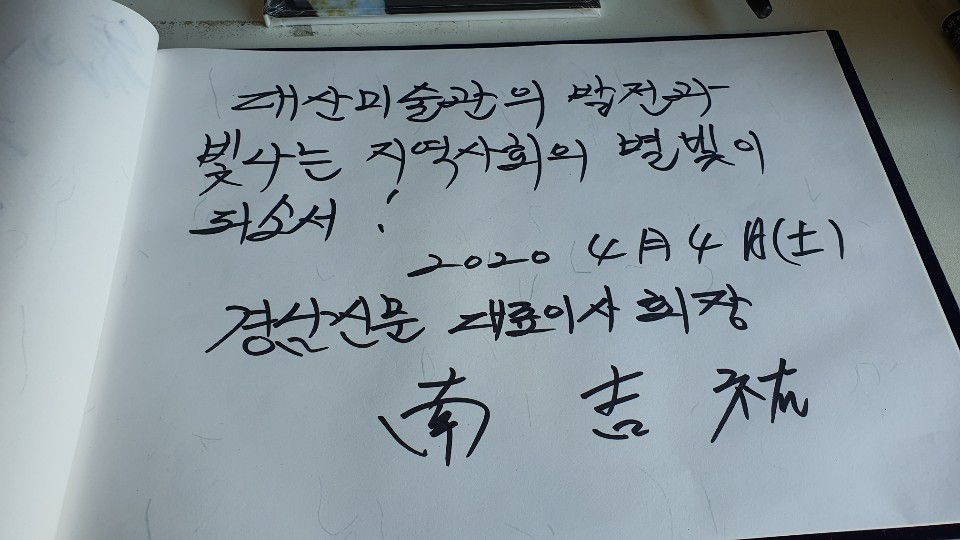 대산미술관의 발전과
빛나는 지역사회의 별빛이
되소서!
2020 4月 4日(土)
경남신문 대표이사 회장
南 吉 祐